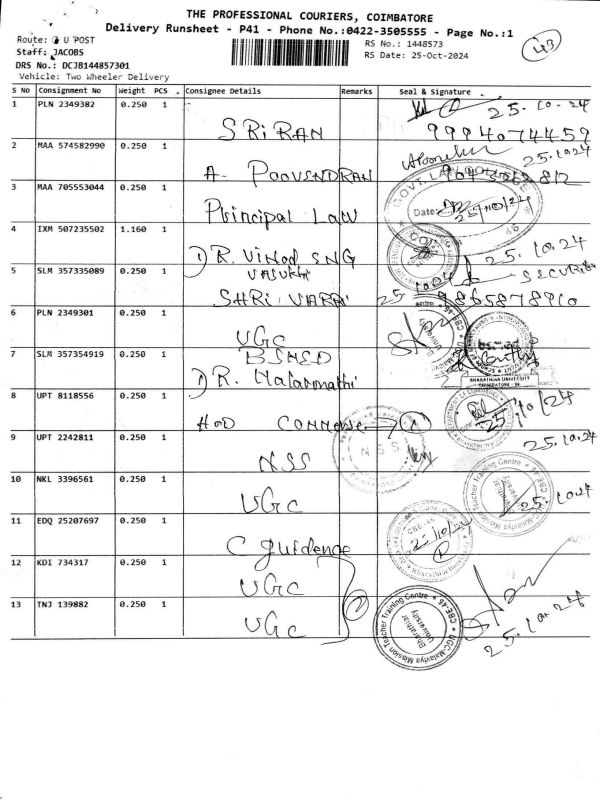 THE PROFESSIONAL COURIERS, COIMBATORE
Delivery Runsheet - P41 - Phone No.:0422-3505555 - Page No.:1
Route: U POST
RS No.: 1448573
Staff: JACOBS
RS Date: 25-Oct-2024
DRS No.: DCJB144857301
Vehicle: Two Wheeler Delivery
S No Consignment No Weight PCS . Consignee Details Remarks Seal & Signature
1 PLN 2349382 0.250 1 SRIRAN 25.10.24
9994074459
2 MAA 574582990 0.250 1 A- POOVENDRAN 25.10.24
3 MAA 705553044 0.250 1 Principal Law
Date: 25/10/24
4 IXM 507235502 1.160 1 1) R. Vinod SNG 25.10.24
5 SLM 357335089 0.250 1 SHRI VARRI SECURITY
9865878910
6 PLN 2349301 0.250 1 UGC
7 SLM 357354919 0.250 1 BSMED
1) R. Malarmathi
BHARATHIAR UNIVERSITY
8 UPT 8118556 0.250 1 HOD COMMERCE 25/10/24
9 UPT 2242811 0.250 1 NSS 25.10.24
NSS
10 NKL 3396561 0.250 1 UGC 25.10.24
11 EDQ 25207697 0.250 1 C guidence
12 KDI 734317 0.250 1 UGC
13 TNJ 139882 0.250 1 UGC 25.10.24
UGC-Malaviya Mission Teacher Training Centre CBE-46
Bharathiar University